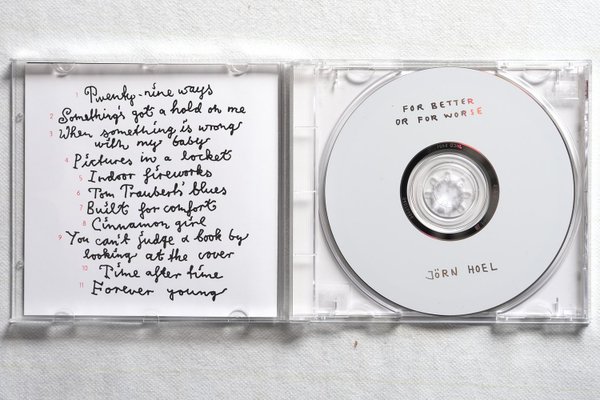 1 Twenty-nine ways
2 Something's got a hold on me
3 When something is wrong
with my baby
4 Pictures in a locket
5 Indoor fireworks
6 Tom Traubert's blues
7 Built for comfort
8 Cinnamon girl
9 You can't judge a book by
looking at the cover
10 Time after time
11 Forever young
FOR BETTER
OR FOR WORSE
JÖRN HOEL